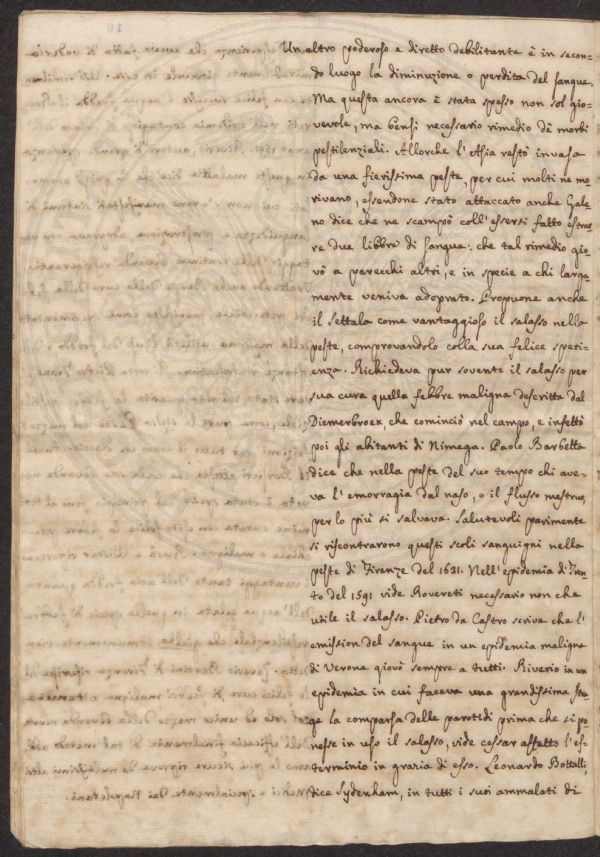 Un altro poderoso e diretto debilitante è in secon-
do luogo la diminuzione o perdita del sangue.
Ma questa ancora è stata spesso non sol gio-
vevole, ma bensì necessario rimedio de morbi
pestilenziali. Allorche l'Asia restò invasa
da una fierissima peste, per cui molti ne mo-
rivano, essendone stato attaccato anche Gale-
no dice che ne scampò coll'essersi fatto estrar-
re due libbre di sangue: che tal rimedio gio-
vò a parecchi altri, e in specie a chi larga-
mente veniva adoprato. Propuone anche
il Settala come vantaggioso il salasso nella
peste, comprovandolo colla sua felice speri-
enza. Richiedeva pur sovente il salasso per
sua cura quella febbre maligna descritta dal
Diemerbroek, che cominciò nel campo, e infettò
poi gli abitanti di Nimega. Paolo Barbetta
dice che nella peste del suo tempo chi ave-
va l'emorragia dal naso, o il flusso mestruo,
per lo più si salvava. Salutevoli parimente
si riscontrarono questi scoli sanguigni nella
peste di Firenze del 1631. Nell'epidemia di Tren-
to del 1591 vide Rovereti necessario non che
utile il salasso. Pietro da Castro scrive che l'
emission del sangue in un epidemia maligna
di Verona giovò sempre a tutti. Riverio in un
epidemia in cui faceva una grandissima stra-
ge la comparsa delle parotidi prima che si po-
nesse in uso il salasso, vide cessar affatto l'es-
terminio in grazia di esso. Leonardo Bottalli,
dice Sydenham, in tutti i suoi ammalati di